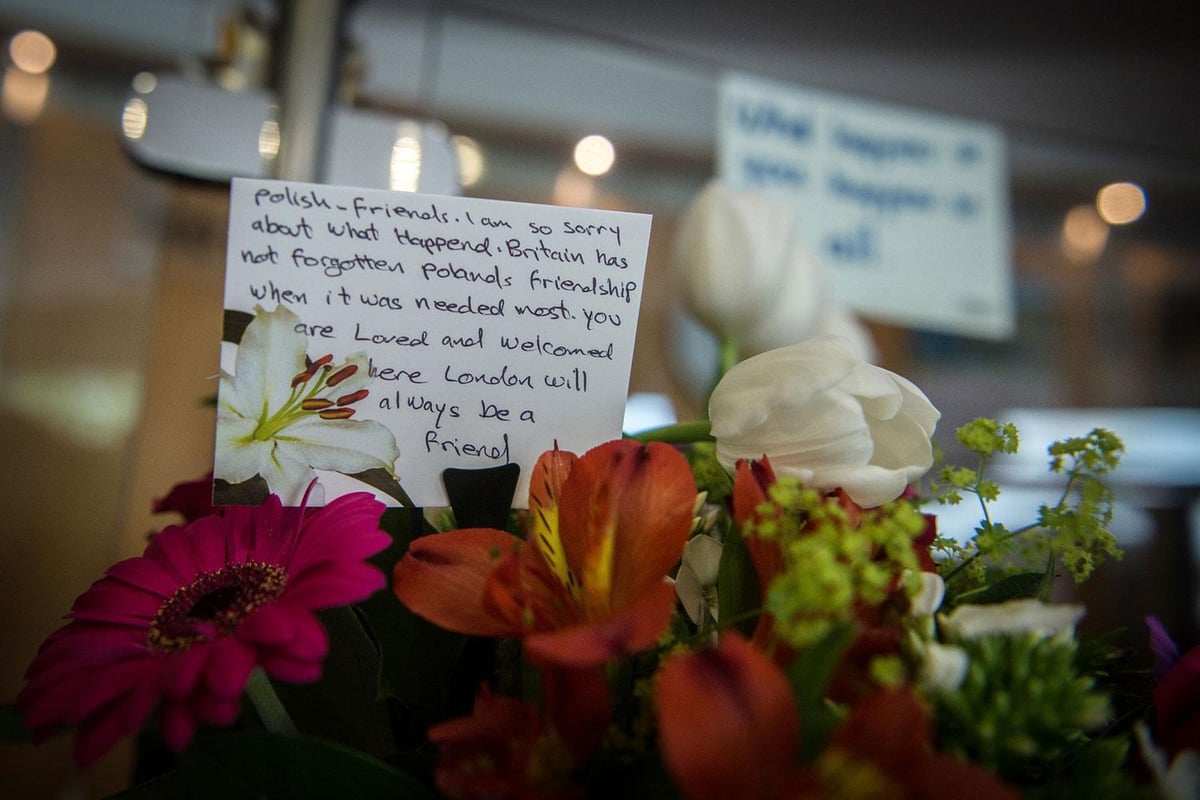 Polish-Friends. I am so sorry
about what Happend. Britain has
not forgotten Polands Friendship
when it was needed most. you
are Loved and welcomed
here London will
always be a
Friend
What happens to
you happens to
us all.